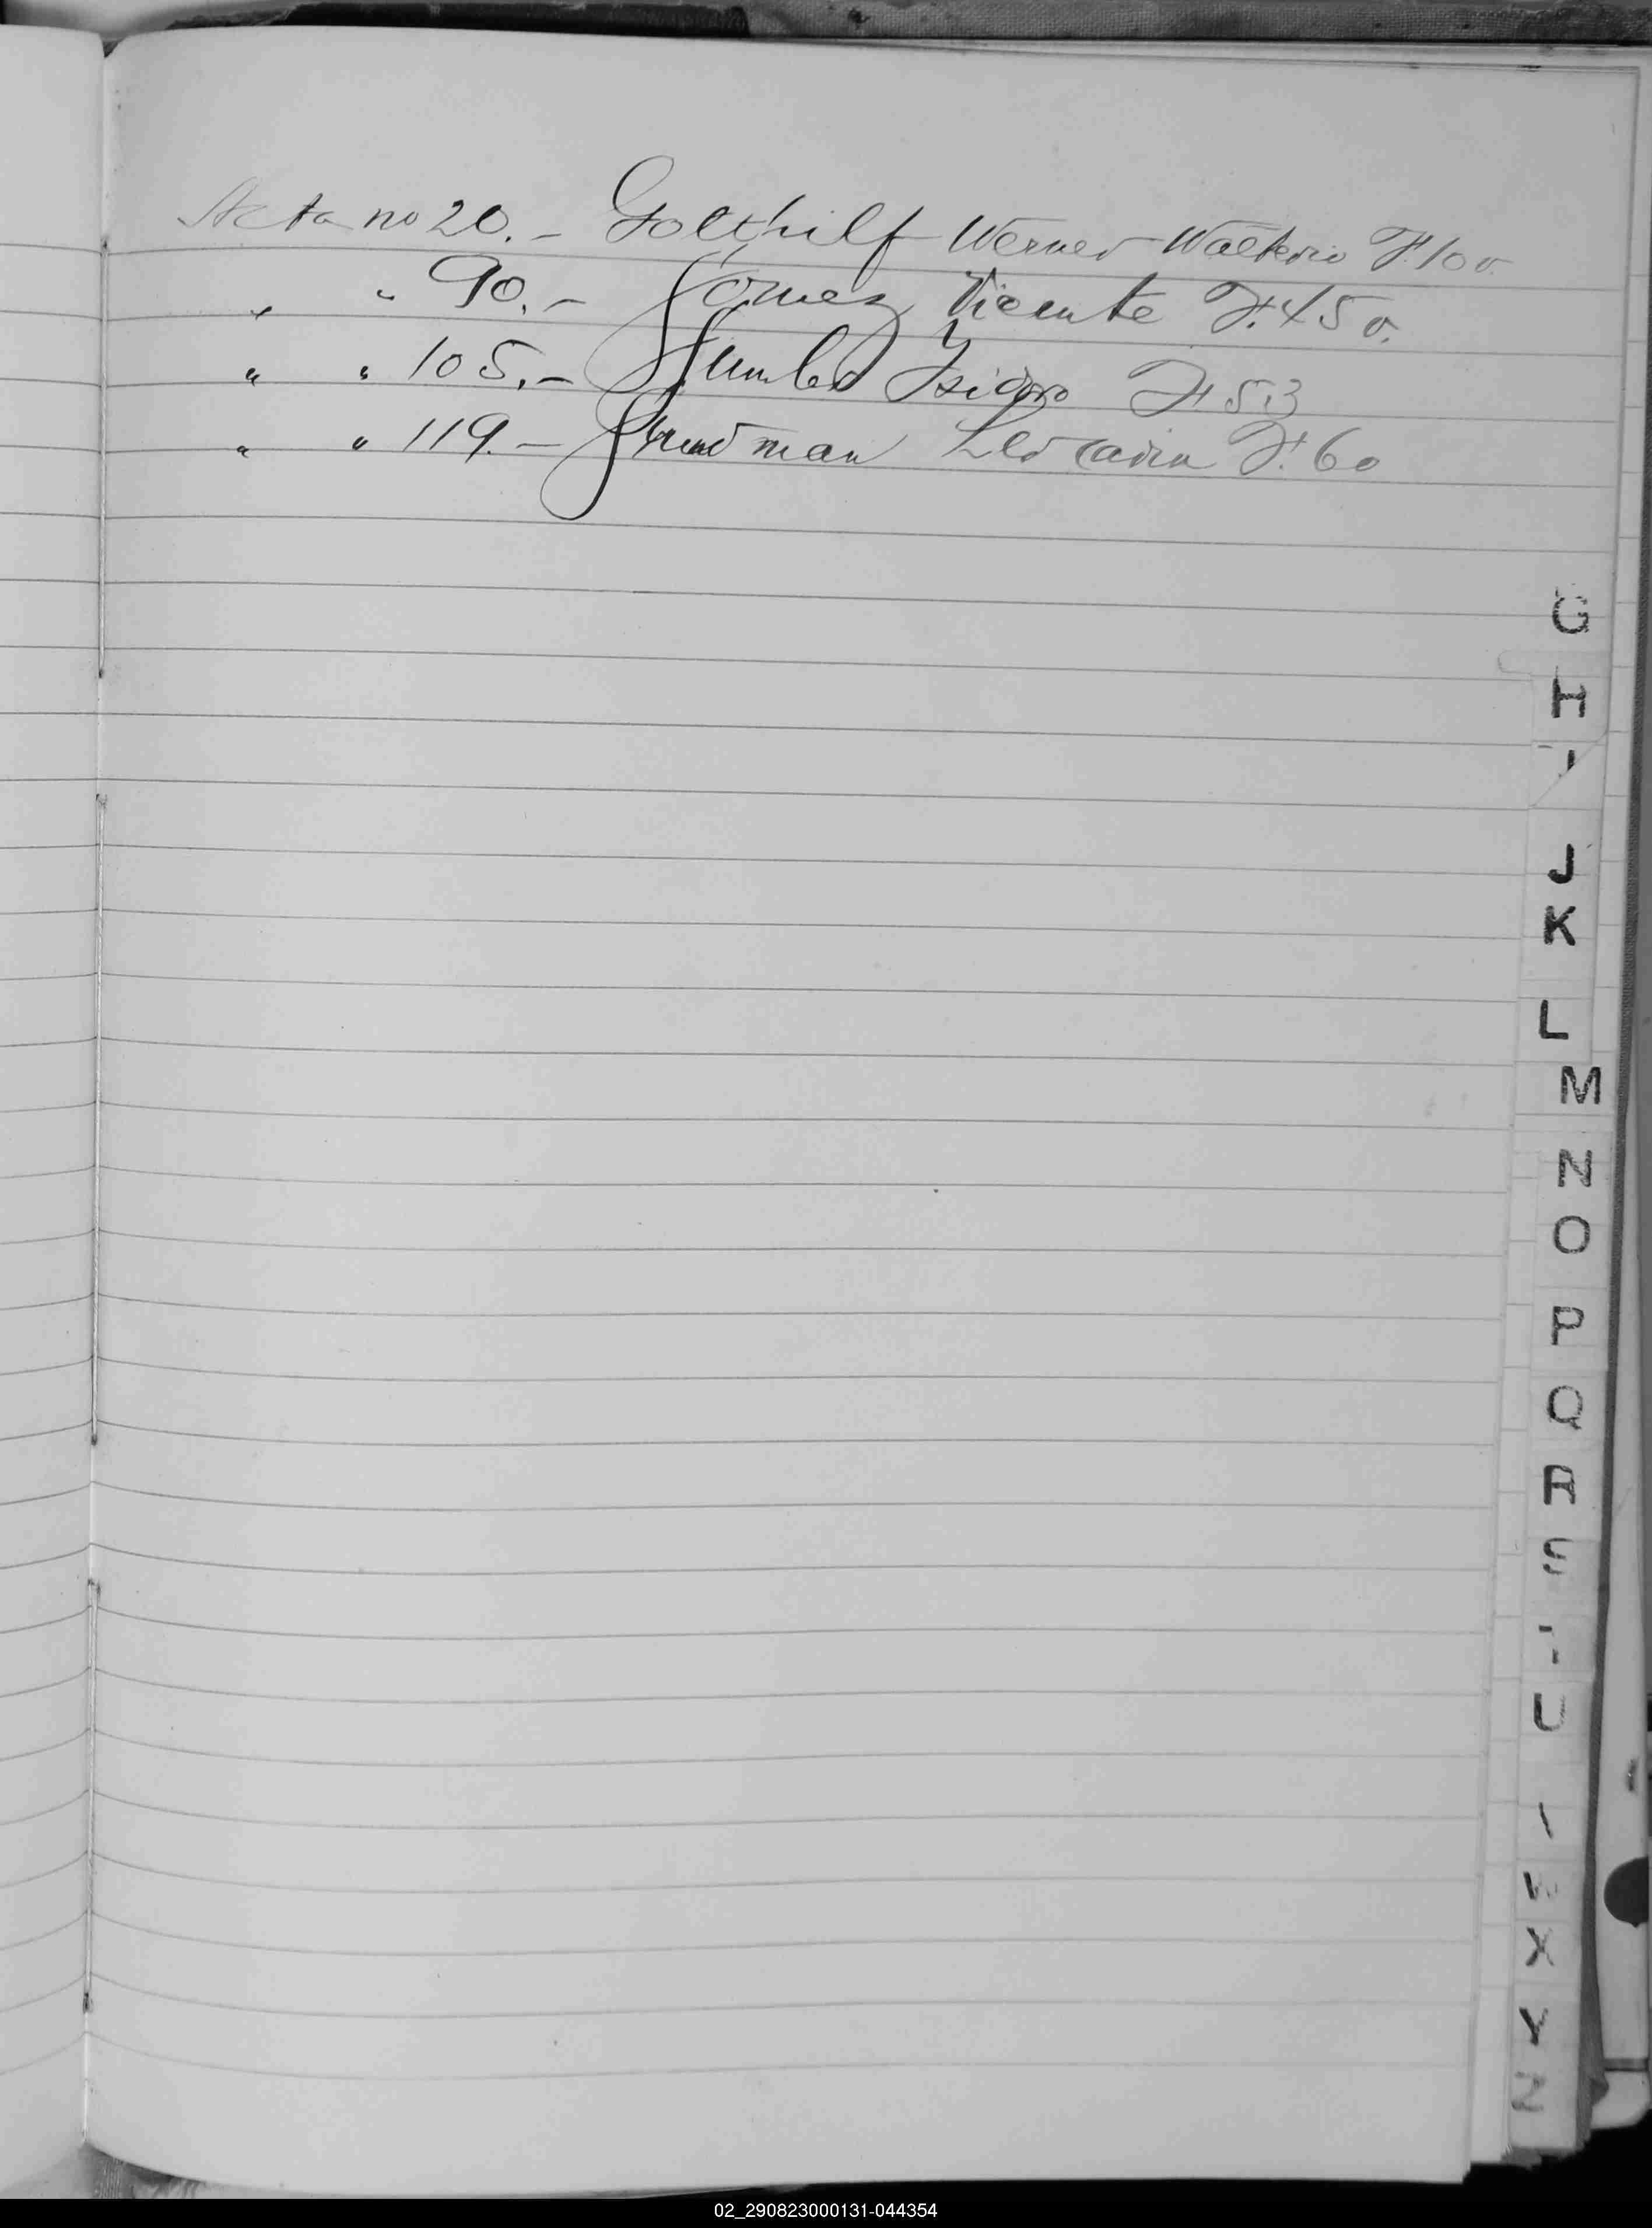 Acta no 20. - Gotthilf Werner Walterio F. 10 v.
" " 90. - Gomez Vicente F. 45 v.
" " 105. - Isidoro F 53
" " 119. - Leocadia F. 60
G
H
I
J
K
L
M
N
O
P
Q
R
S
U
W
X
Y
Z
02_290823000131-044354